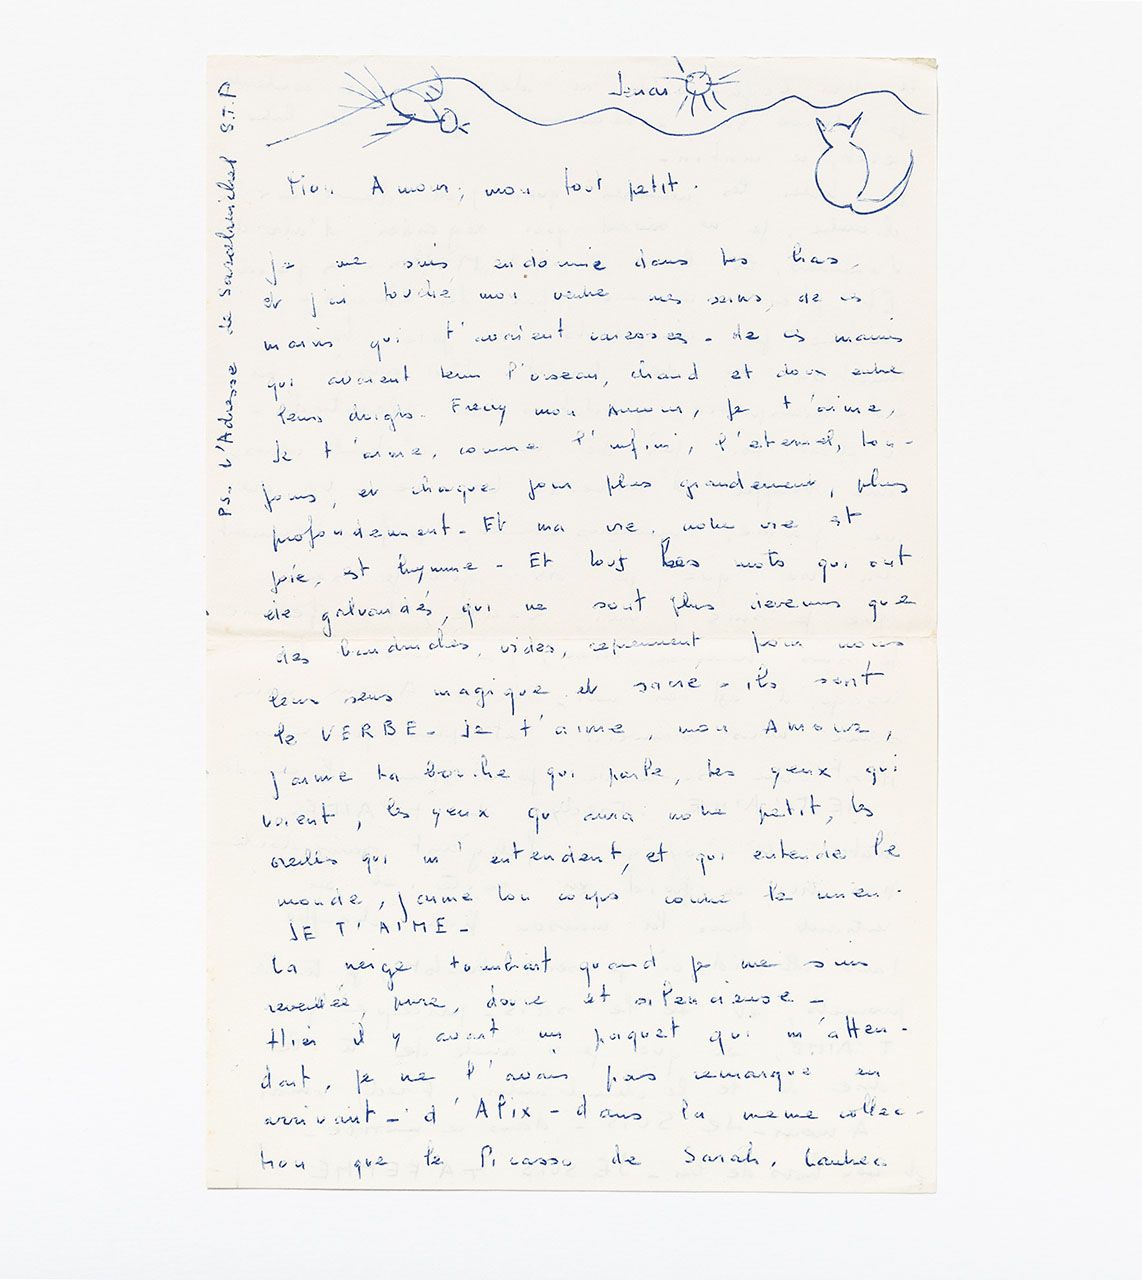 Mon Amour, mon tout petit.
Je me suis endormie dans tes bras,
et j'ai touché mon ventre mes seins, de ces
mains qui t'avaient caressés - de ces mains
qui avaient tenu l'oiseau, chaud et doux entre
leurs doigts. Freddy mon Amour, je t'aime,
Je t'aime, comme l'infini, l'éternel, tou-
jours, et chaque jour plus grandement, plus
profondement - Et ma vie, notre vie est
joie, est hymne - Et tous les mots qui ont
été galvaudés, qui ne sont plus devenus que
des baudruches, vides, reprennent pour nous
leur sens magique et sacré - ils sont
le VERBE - Je t'aime, mon Amour,
j'aime ta bouche qui parle, tes yeux qui
voient, les yeux qu'aura notre petit, les
oreilles qui m'entendent, et qui entende le
monde, j'aime ton corps comme le mien.
JE T'AIME -
La neige tombait quand je me suis
reveillée, pure, douce et silencieuse -
Hier il y avait un paquet qui m'atten-
dait, je ne l'avais pas remarqué en
arrivant - d'Alix - dans la meme collec-
tion que le Picasso de Sarah,
PS. L'Adresse de S.T.P